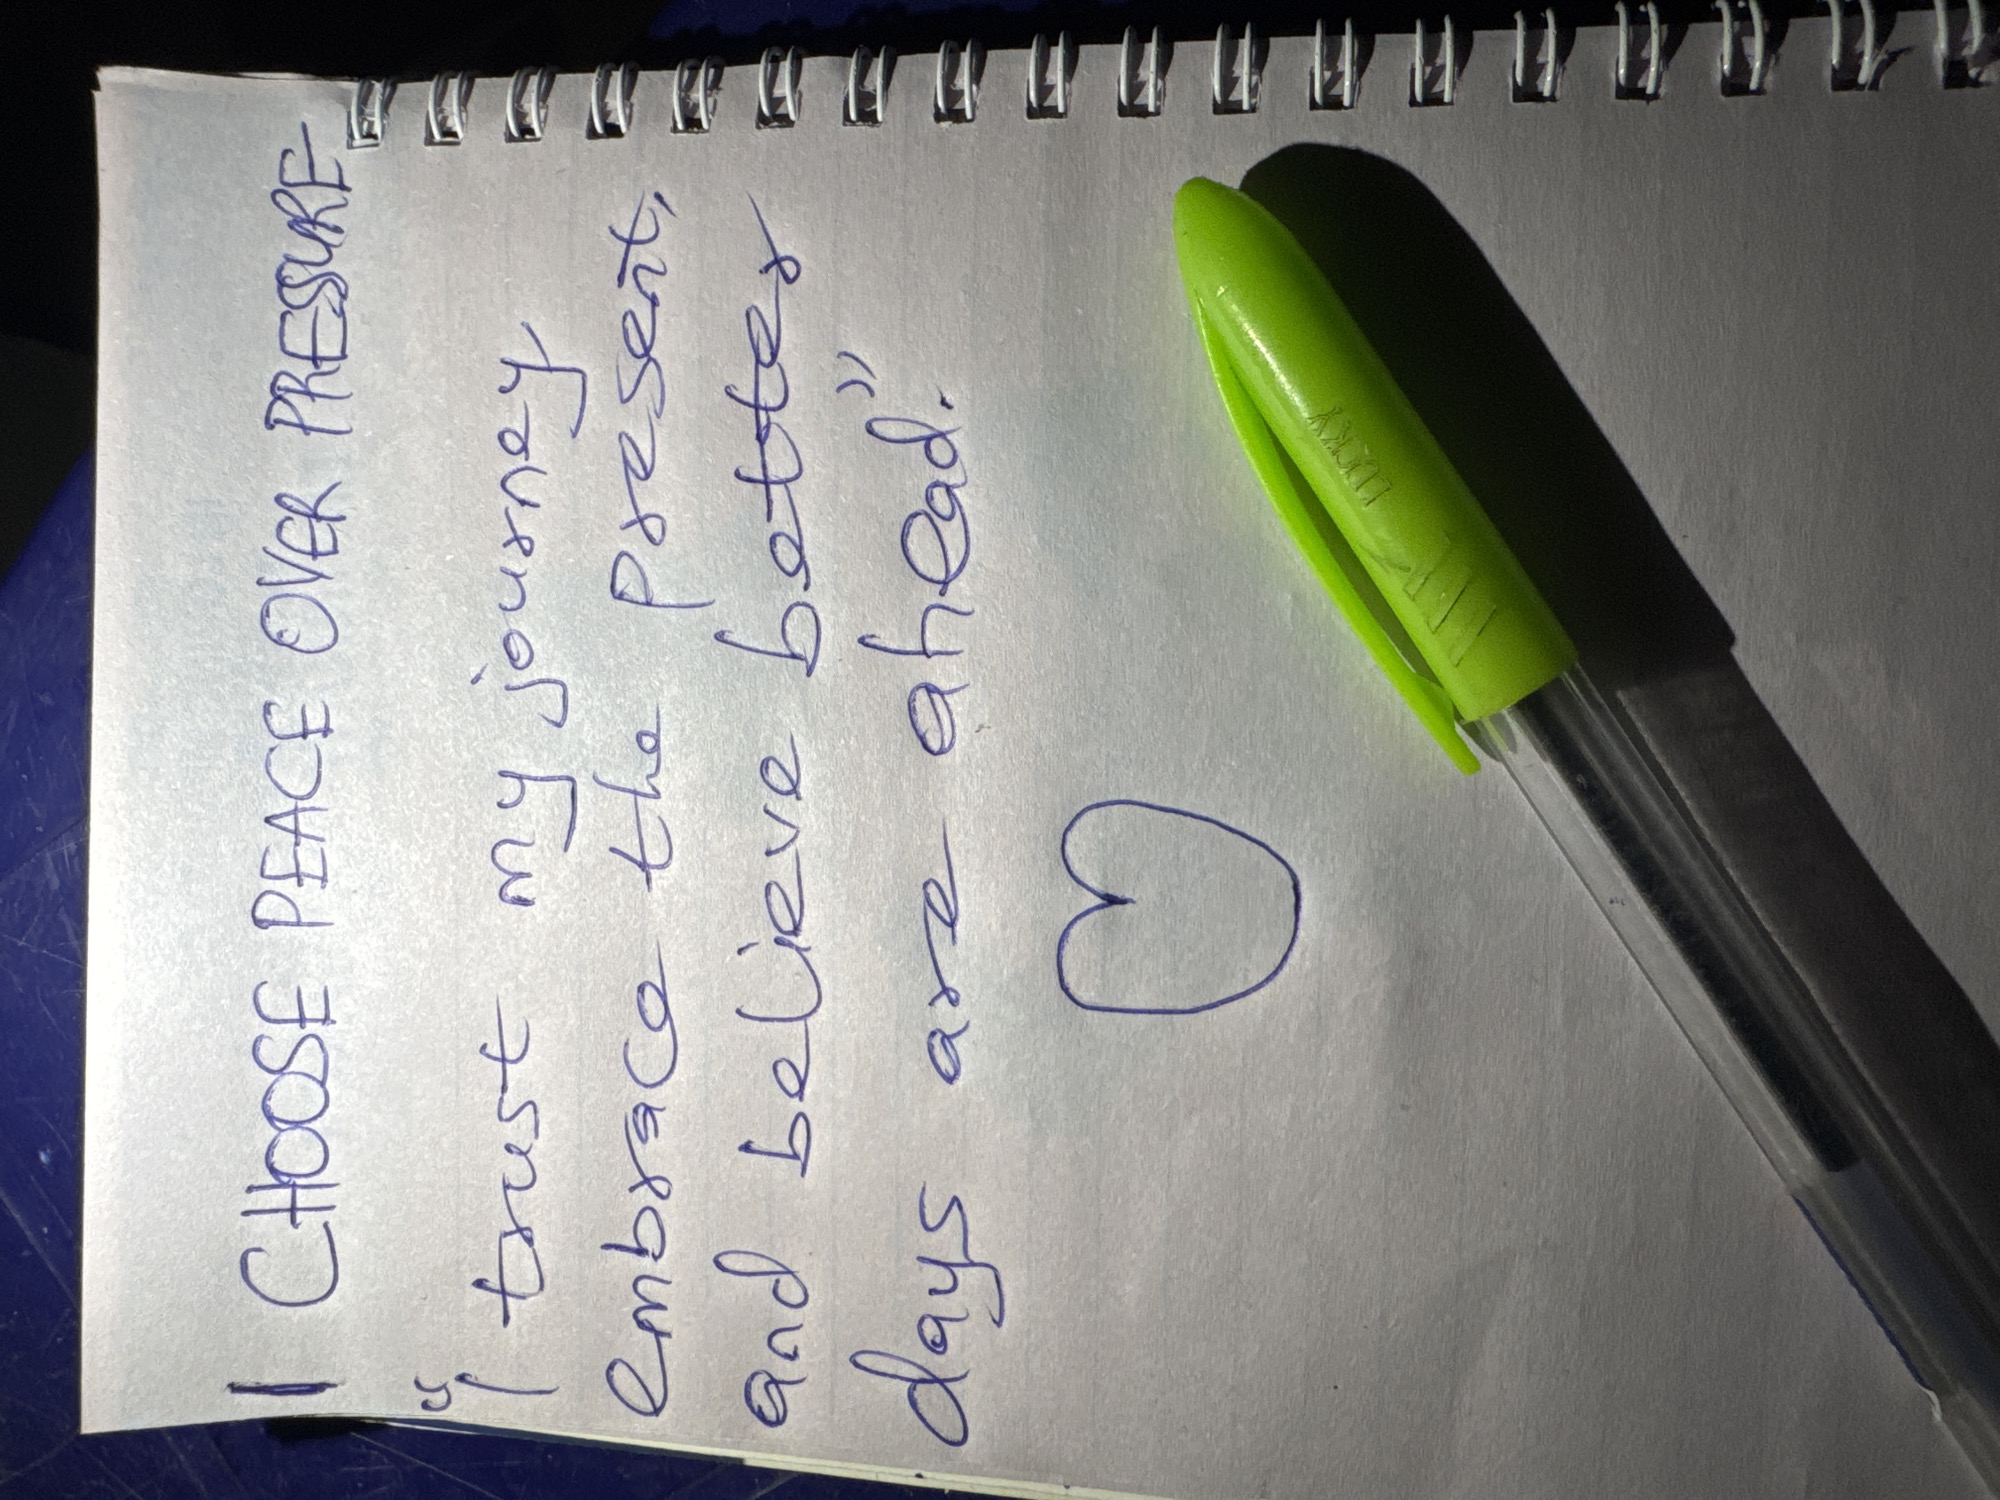 I CHOOSE PEACE OVER PRESSURE
"I trust my journey
embrace the present,
and believe better
days are ahead."
LUCKY